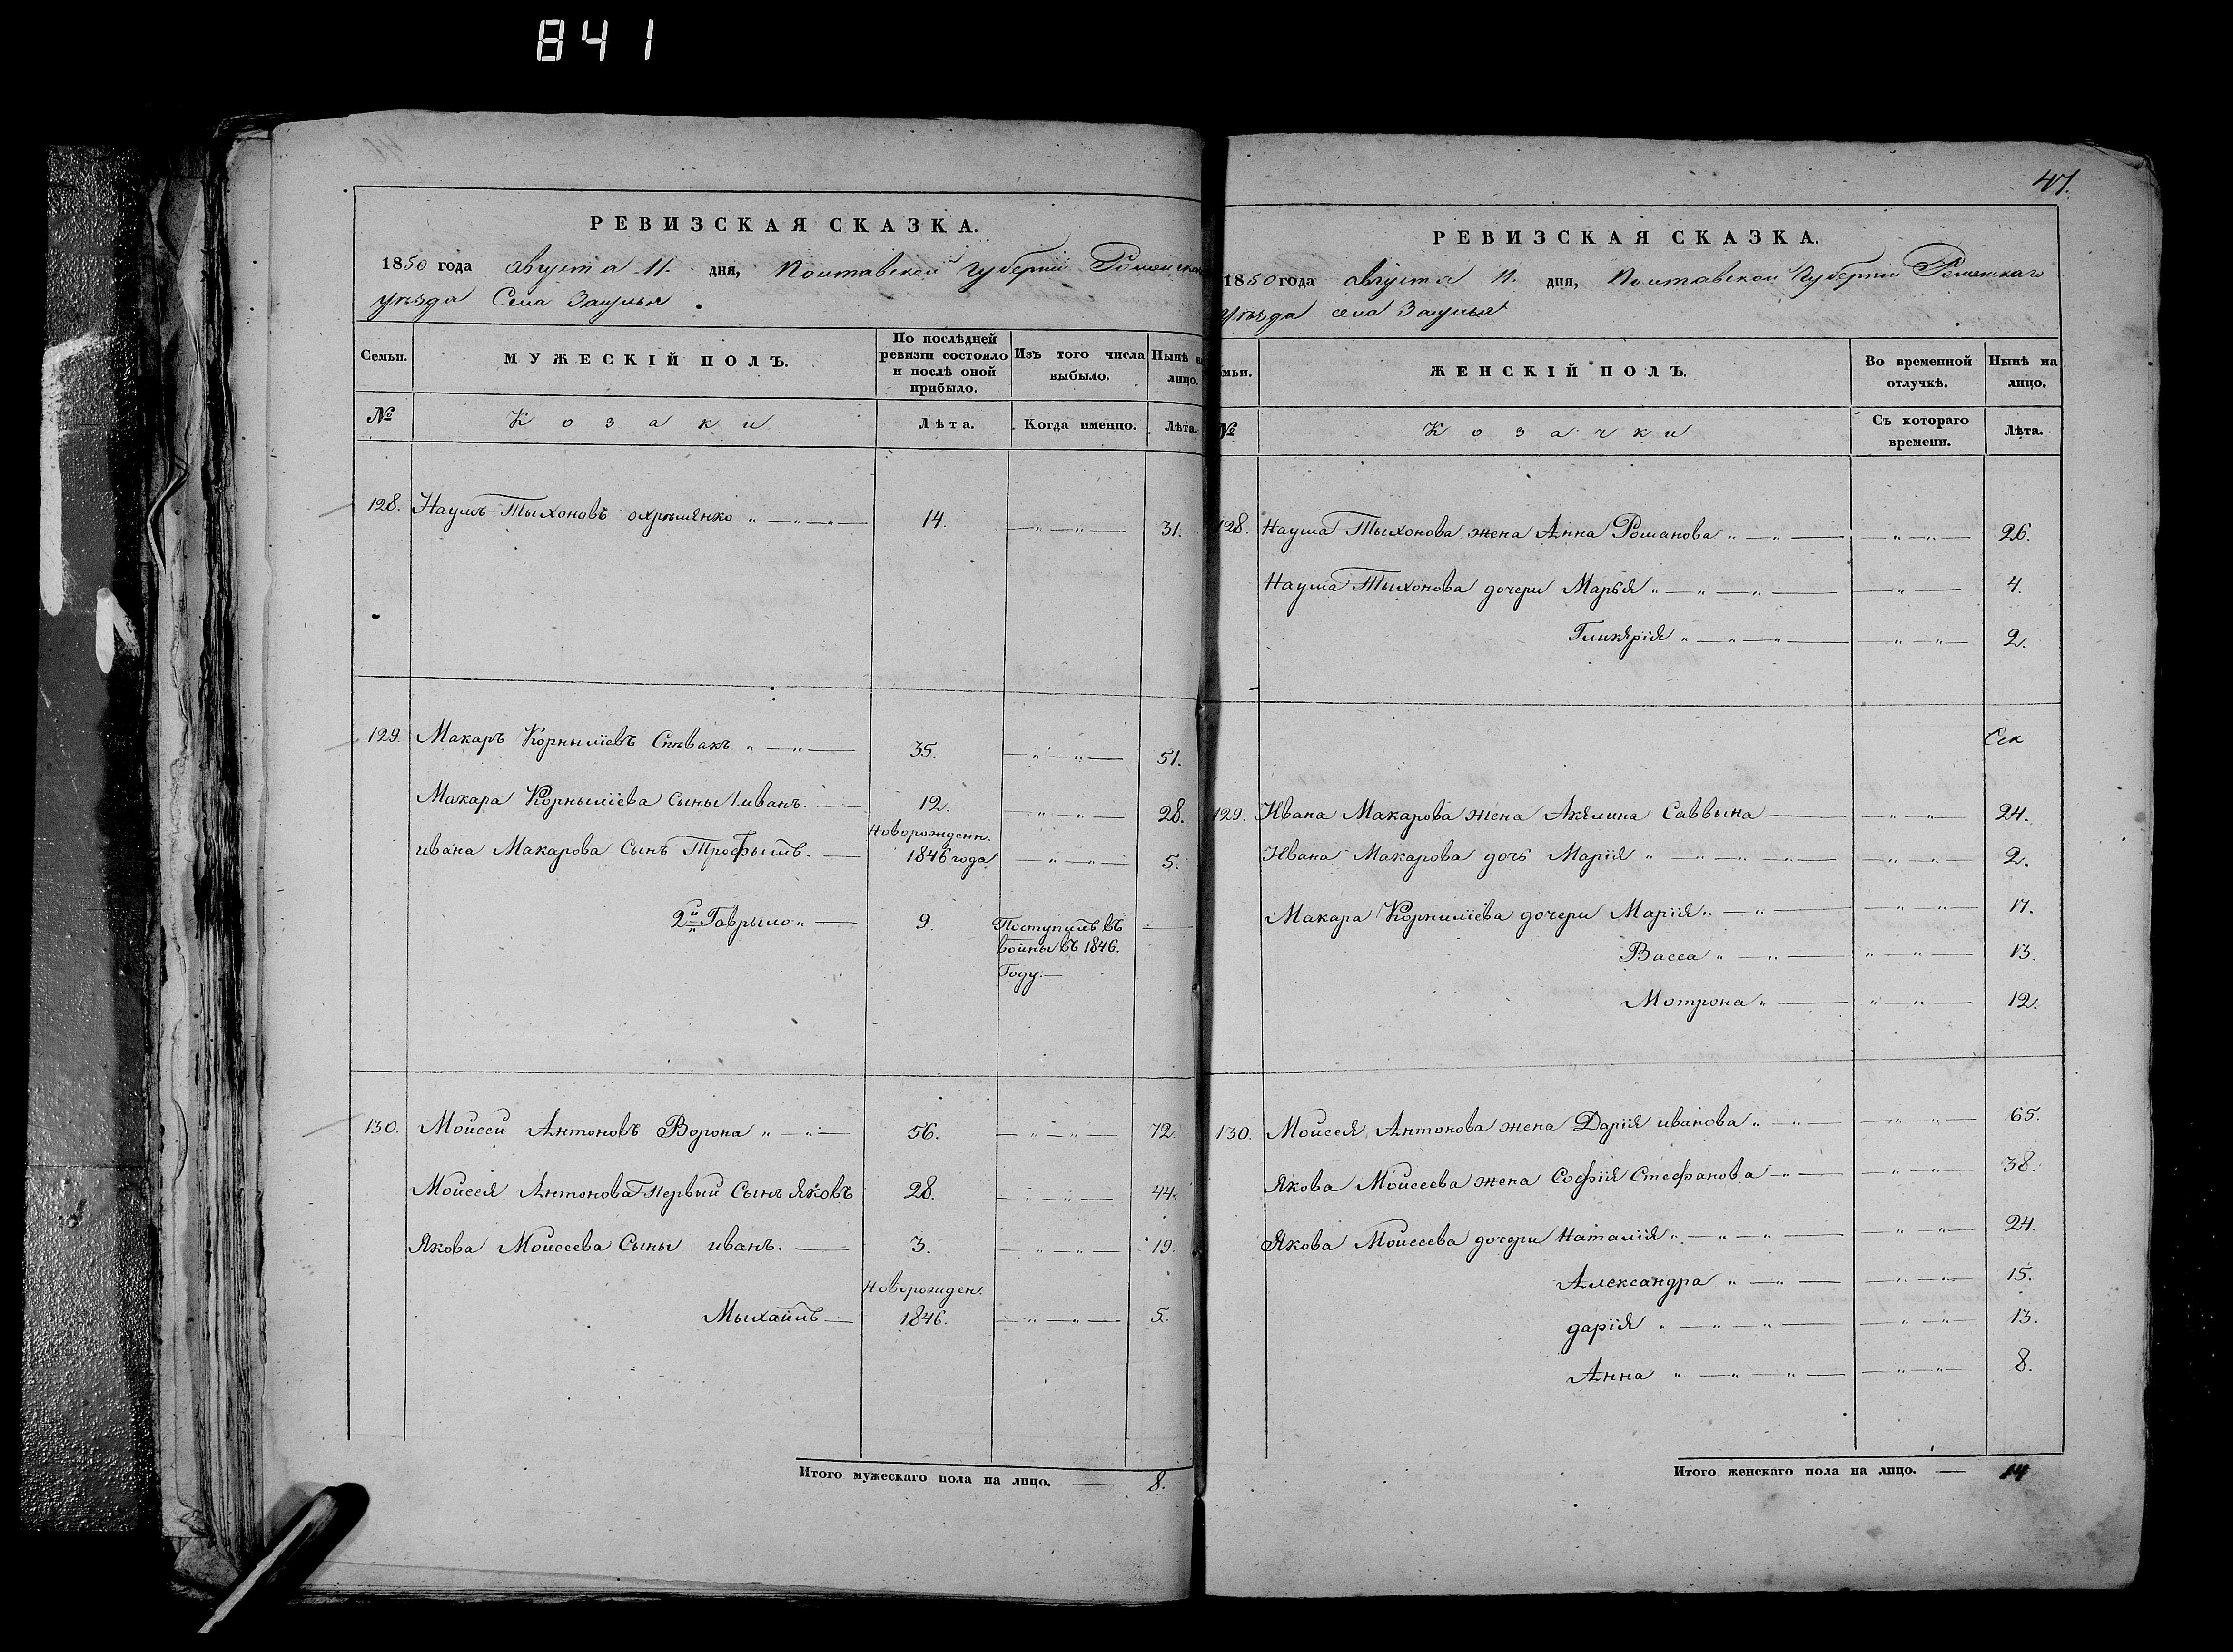 841
РЕВИЗСКАЯ СКАЗКА.
1850 года августа 11. дня, Полтавской Губерніи Роменска
уѣзда Села Засулья
Семьи.
МУЖЕСКІЙ ПОЛЪ.
По послѣдней ревизіи состояло и послѣ оной прибыло.
Изъ того числа выбыло.
Нынѣ на лицо.
№
Козаки
Лѣта.
Когда именно.
Лѣта.
128. Наумъ Тыхоновъ Охрѣменко 14. 31.
129. Макаръ Корныліевъ Спѣвакъ 35. 51.
Макара Корныліева сыны 1. иванъ. 12. 28.
ивана Макарова Сынъ Трофымъ. Новорожденн. 1846 года 5.
2й Гаврыло 9. Поступилъ въ
воины въ 1846.
Году.
130. Моисей Антоновъ Ворона 56. 72.
Моисея Антонова Первый Сынъ Яковъ 28. 44.
Якова Моисеева Сыны иванъ. 3. 19.
Новорожден.
Мыхаилъ 1846. 5.
Итого мужескаго пола на лицо. 8.
47.
РЕВИЗСКАЯ СКАЗКА.
1850 года августа 11. дня, Полтавской Губерніи Роменскаго
уѣзда села Засулья
мьи.
ЖЕНСКІЙ ПОЛЪ.
Во временной отлучкѣ.
Нынѣ на лицо.
№
Козачки
Съ котораго времени.
Лѣта.
128. Наума Тыхонова жена Анна Романова 26.
Наума Тыхонова дочери Марья 4.
Гликярія 2.
129. Ивана Макарова жена Акилина Саввына 24.
Ивана Макарова дочь Марія 2.
Макара Корниліева дочери Марія 17.
Васса 13.
Мотрона 12.
130. Моисея Антонова жена Дарія иванова 65.
Якова Моисеева жена Софія Стефанова 38.
Якова Моисеева дочери Наталія 24.
Александра 15.
дарія 13.
Анна 8.
Итого женскаго пола на лицо. 14